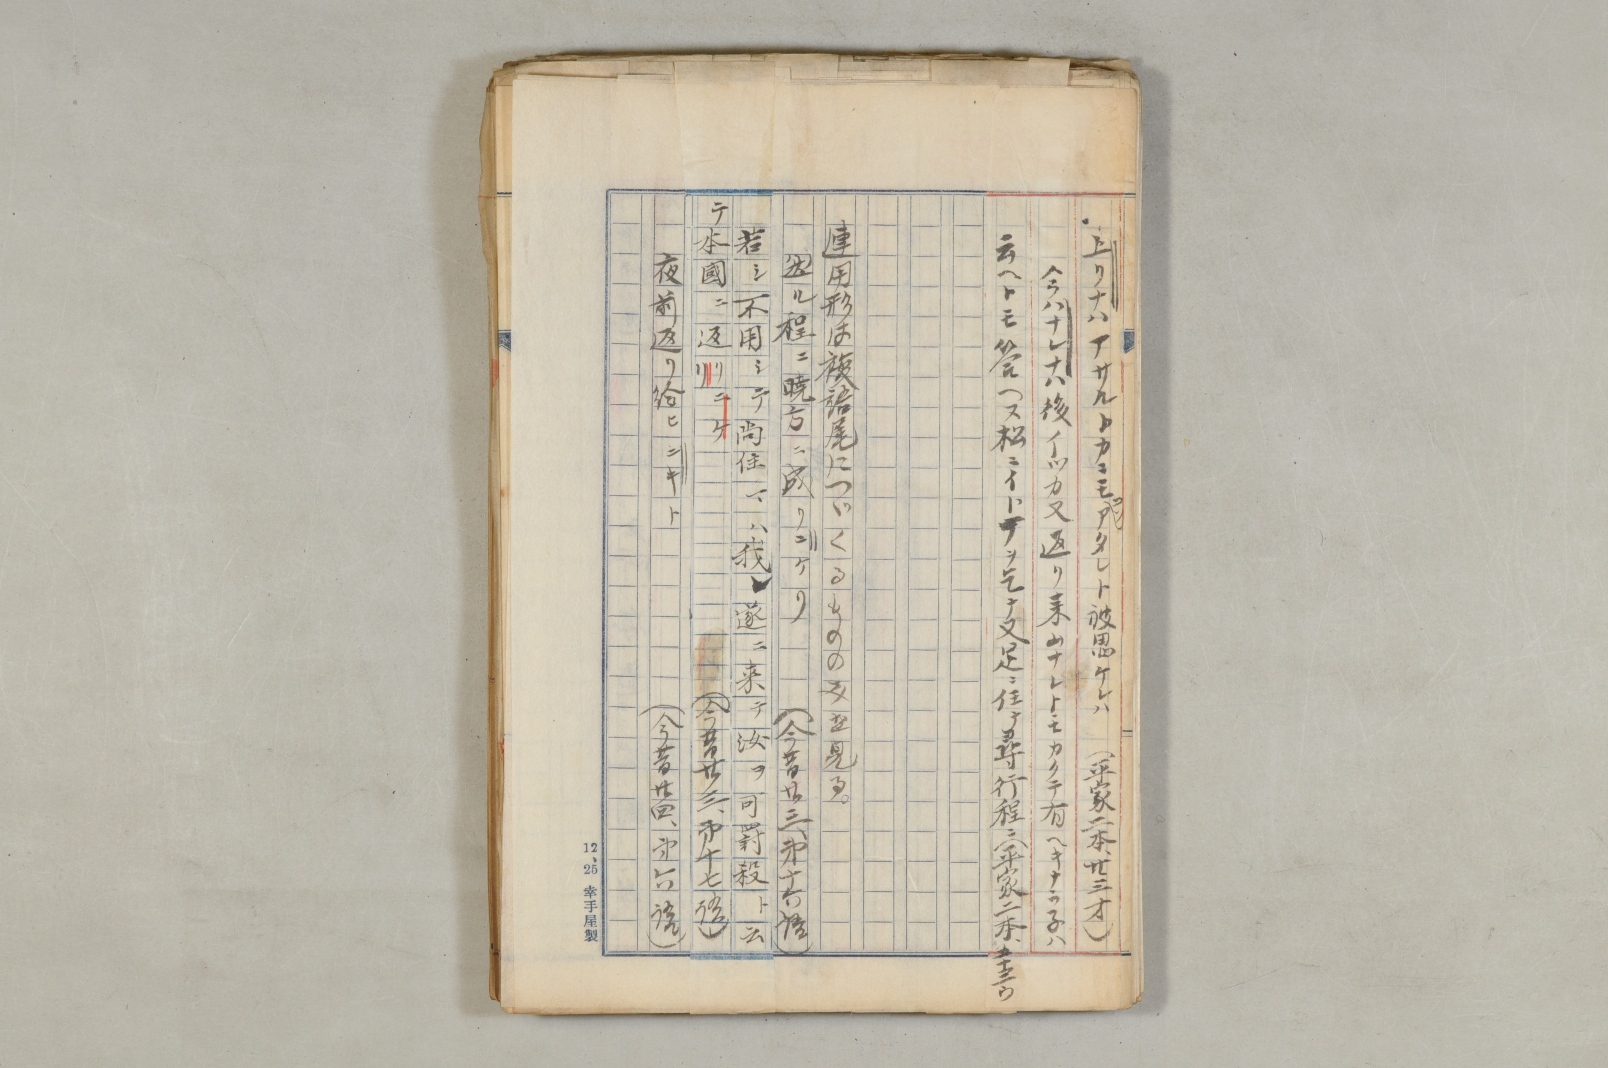 上リナハアサルトカニモアタレト被思ケレハ（平家二本、廿三オ）
今ハナレナハ後イツカ又返リ来ムナレトモカクテ有ヘキナラネハ
云ヘトモ答ヘス松ニイトマヲ乞テ又足ニ任テ尋行程ニ（平家二本、
連用形は複語尾につゞくるもののみを見る。
然ル程ニ暁方ニ成リニケリ（今昔廿三、第十六語）
若シ不用シテ尚住マハ我レ遂ニ来テ汝ヲ可罸殺ト云
テ本國ニ返リニケリ（今昔廿三、第十七語）
夜前返リ給ヒニキト（今昔廿四、第六語）
12、25 幸手屋製